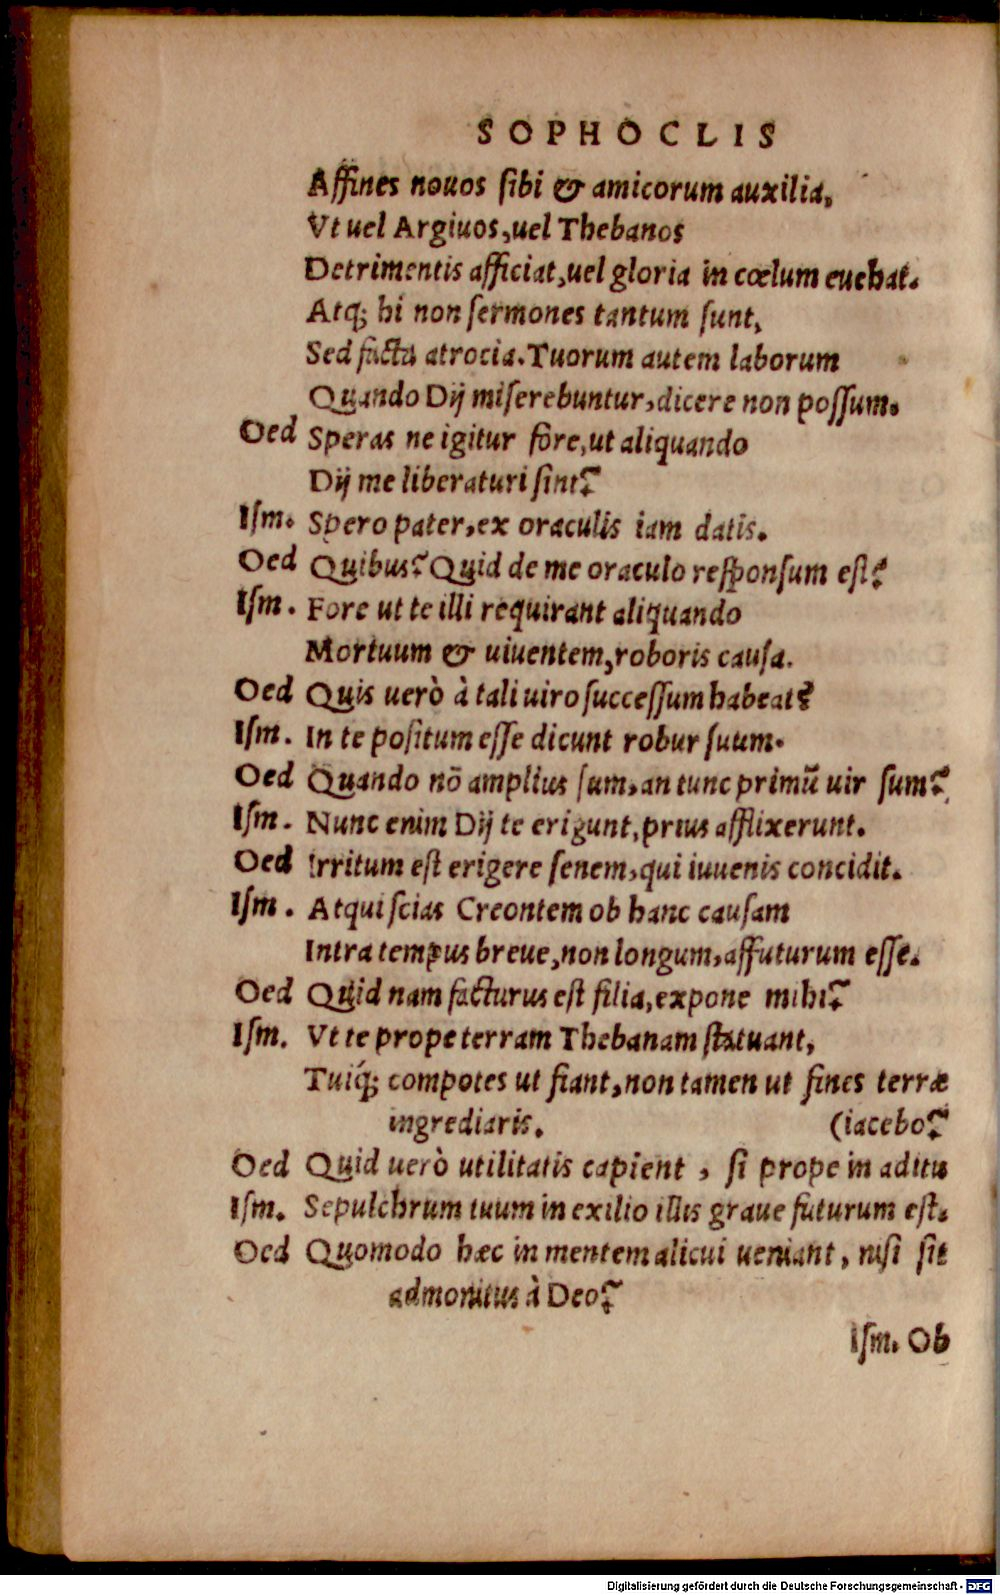 SOPHOCLIS
Affines nouos ſibi & amicorum auxilia,
Vt uel Argiuos, uel Thebanos
Detrimentis afficiat, uel gloria in cœlum euehat.
Atq; hi non ſermones tantum ſunt,
Sed facta atrocia. Tuorum autem laborum
Quando Dij miſerebuntur, dicere non poſſum.
Oed Speras ne igitur fore, ut aliquando
Dij me liberaturi ſint?
Iſm. Spero pater, ex oraculis iam datis.
Oed Quibus? Quid de me oraculo reſponſum eſt?
Iſm. Fore ut te illi requirant aliquando
Mortuum & uiuentem, roboris cauſa.
Oed Quis uerò à tali uiro ſucceſſum habeat?
Iſm. In te poſitum eſſe dicunt robur ſuum.
Oed Quando nō amplius ſum, an tunc primū uir ſum?
Iſm. Nunc enim Dij te erigunt, prius afflixerunt.
Oed Irritum eſt erigere ſenem, qui iuuenis concidit.
Iſm. Atqui ſcias Creontem ob hanc cauſam
Intra tempus breue, non longum, affuturum eſſe.
Oed Quid nam facturus eſt filia, expone mihi?
Iſm. Vt te prope terram Thebanam ſtatuant,
Tuiq́; compotes ut fiant, non tamen ut fines terræ
ingrediaris. (iacebo?
Oed Quid uerò utilitatis capient, ſi prope in aditu
Iſm. Sepulchrum tuum in exilio illis graue futurum eſt.
Oed Quomodo hæc in mentem alicui ueniant, niſi ſit
admonitus à Deo?
Iſm. Ob
Digitalisierung gefördert durch die Deutsche Forschungsgemeinschaft - DFG